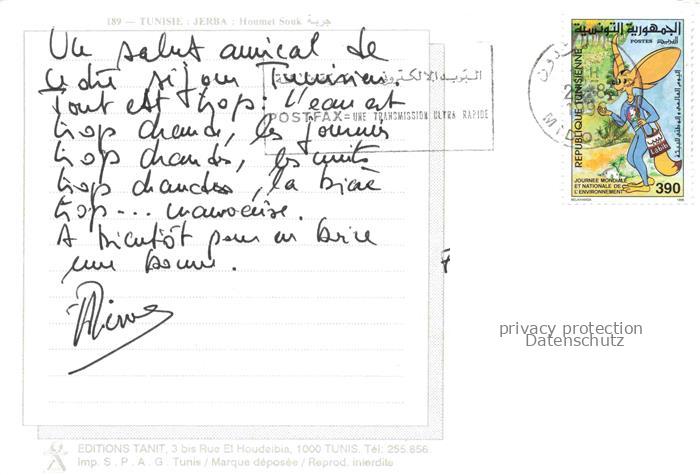 189 — TUNISIE : JERBA : Houmet Souk جربة
Un salut amical de
notre séjour Tunisien.
Tout est trop: L'eau est
trop chaude, les journées
trop chaudes, les nuits
trop chaudes, la bière
trop... marocaine.
A bientôt pour en boire
une bonne.
البريد الالكتروني
POSTFAX = UNE TRANSMISSION ULTRA RAPIDE
MIDOUN
الجمهورية التونسية
POSTES البريد
REPUBLIQUE TUNISIENNE
Labib
JOURNEE MONDIALE
ET NATIONALE DE
L'ENVIRONNEMENT
390
privacy protection
Datenschutz
EDITIONS TANIT, 3 bis Rue El Houdeibia, 1000 TUNIS. Tél: 255.856.
Imp. S. P. A. G. Tunis / Marque déposée / Reprod. interdite